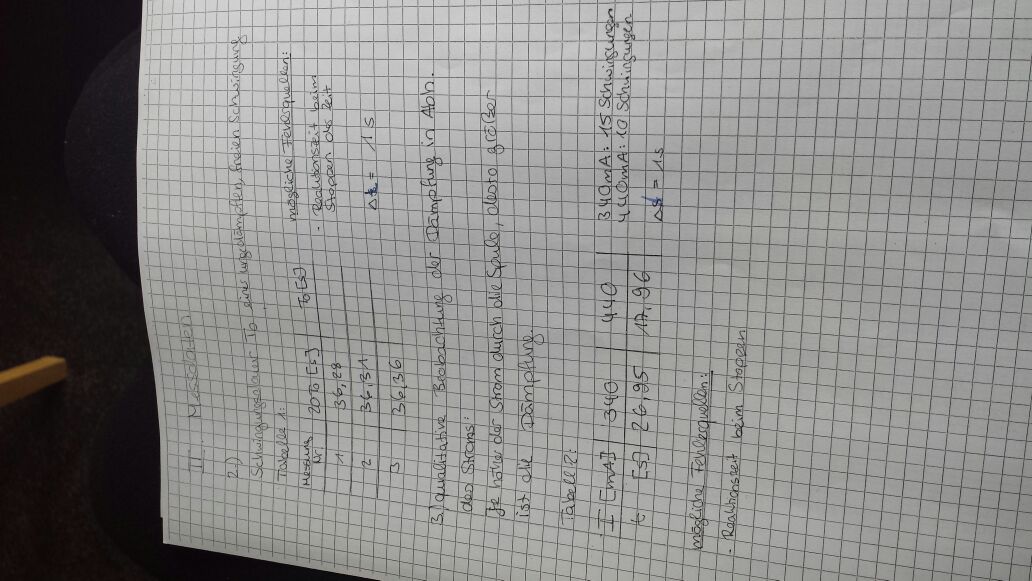 II. Messdaten
2.)
Schwingungsdauer T0 einer ungedämpften freien Schwingung
Tabelle 1:
Messung Nr. 20T0 [s] T0 [s]
1 36,28
2 36,31
3 36,36
mögliche Fehlerquellen:
- Reaktionszeit beim
Stoppen der Zeit
Δt = 1 s
3.) qualitative Beobachtung der Dämpfung in Abh.
des Stroms:
Je höher der Strom durch die Spule, desto größer
ist die Dämpfung.
Tabelle 2:
I [mA] 340 440
t [s] 26,95 17,96
340mA: 15 Schwingungen
440mA: 10 Schwingungen
Δt = 1s
mögliche Fehlerquellen:
- Reaktionszeit beim Stoppen